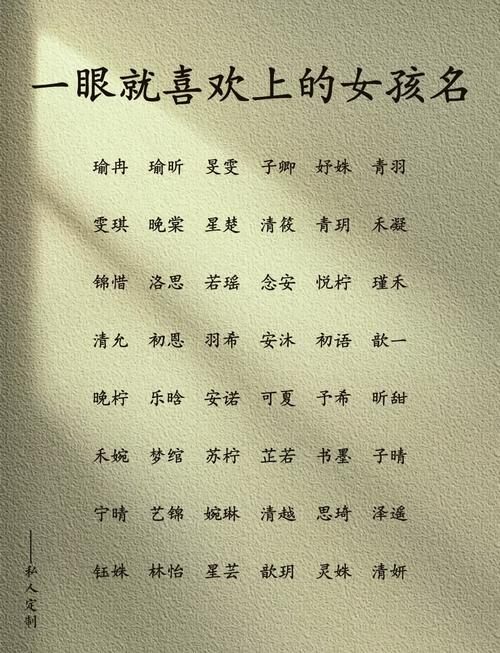 一眼就喜欢上的女孩名
瑜冉 瑜昕 旻雯 子卿 妤姝 青羽
雯琪 晚棠 星楚 清筱 青玥 禾凝
锦惜 洛思 若瑶 念安 悦柠 瑾禾
清允 初恩 羽希 安沐 初语 歆一
晚柠 乐晗 安诺 可夏 予希 昕甜
禾婉 梦绾 苏柠 芷若 书墨 子晴
宁晴 艺锦 婉琳 清越 思琦 泽遥
钰姝 林怡 星芸 歆玥 灵姝 清妍
——私人定制